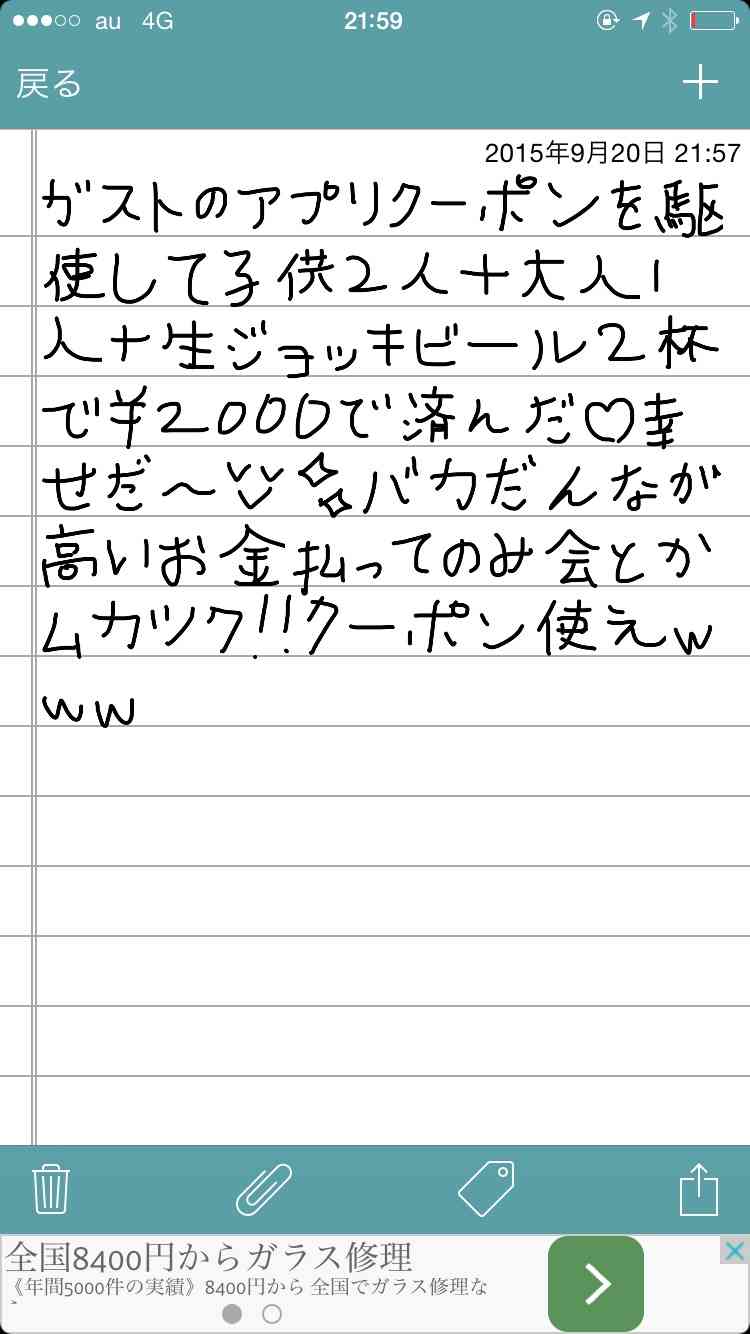 au 4G 21:59
戻る
2015年9月20日 21:57
ガストのアプリクーポンを駆
使して子供2人+大人1
人+生ジョッキビール2杯
で¥2000で済んだ♡幸
せだ〜 バカだんなが
高いお金払ってのみ会とか
ムカツク!!クーポン使えw
ww
全国8400円からガラス修理
《年間5000件の実績》8400円から 全国でガラス修理な